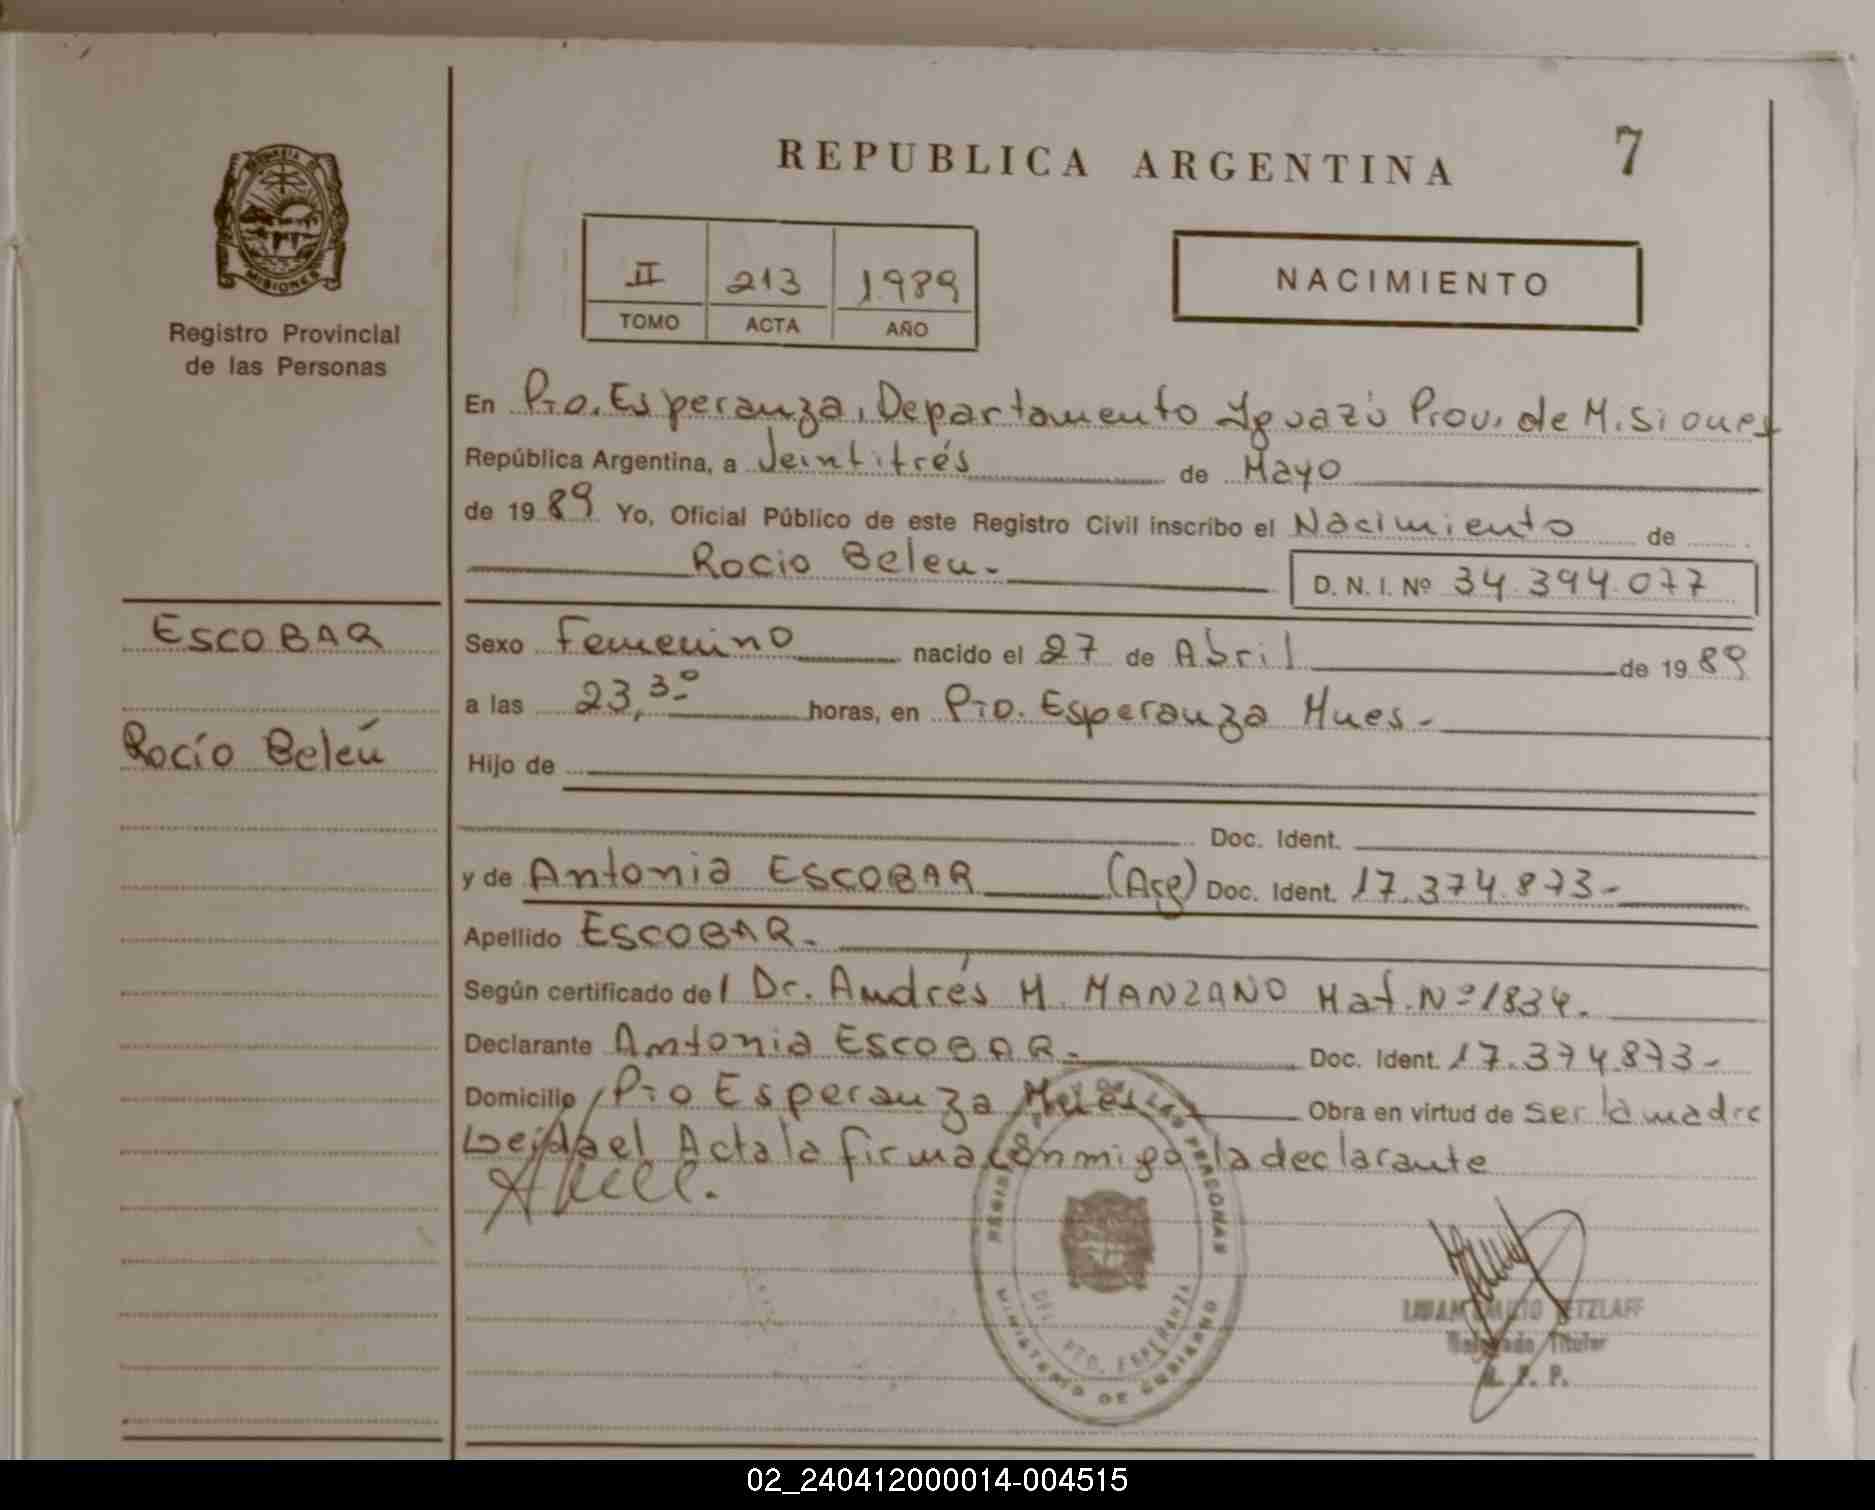 REPUBLICA ARGENTINA
7
MISIONES
Registro Provincial
de las Personas
II 213 1989
TOMO ACTA AÑO
NACIMIENTO
En Pto. Esperanza, Departamento Iguazú Prov. de Misiones
República Argentina, a Veintitrés de Mayo
de 1989 Yo, Oficial Público de este Registro Civil inscribo el Nacimiento de
Rocio Belen.- D. N. I. Nº 34.394.077
ESCOBAR
Rocío Belén
Sexo Femenino nacido el 27 de Abril de 1989
a las 23,30 horas, en Pto. Esperanza Mnes.-
Hijo de
Doc. Ident.
y de Antonia ESCOBAR (Arg) Doc. Ident. 17.374.873-
Apellido ESCOBAR.-
Según certificado del Dr. Andrés M. MANZANO Mat. Nº 1834.
Declarante Antonia ESCOBAR.- Doc. Ident. 17.374.873-
Domicilio Pto Esperanza Mnes Obra en virtud de ser la madre
Leida el Acta la firma conmigo la declarante
DE LAS PERSONAS
DEL. PTO. ESPERANZA
MINISTERIO DE GOBIERNO
Delegado Titular
R. P. P.
02_240412000014-004515